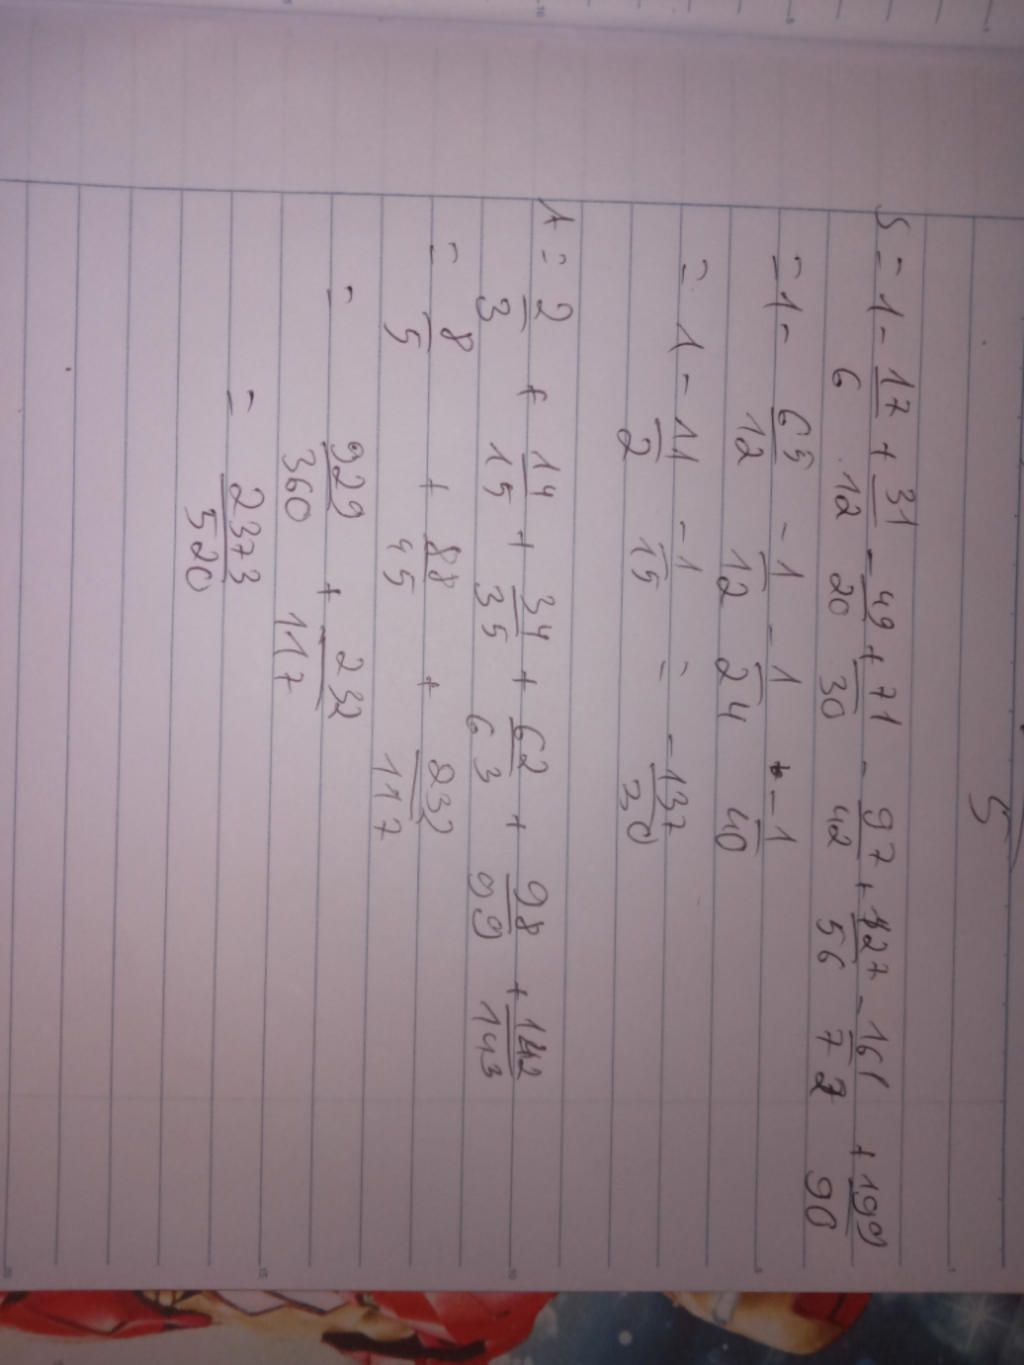 5
S = 1 - 17/6 + 31/12 - 49/20 + 71/30 - 97/42 + 127/56 - 161/72 + 199/90
= 1 - 65/12 - 1/12 - 1/24 - 1/40
= 1 - 11/2 - 1/15 = -137/30
A = 2/3 + 14/15 + 34/35 + 62/63 + 98/99 + 142/143
= 8/5 + 88/45 + 232/117
= 929/360 + 232/117
= 2373/520